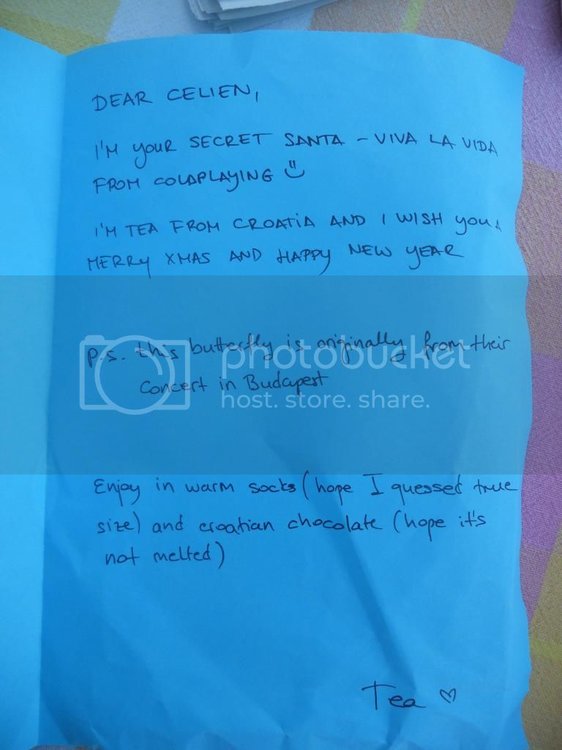 DEAR CELIEN,
I'M YOUR SECRET SANTA - VIVA LA VIDA
FROM COLDPLAYING
I'M TEA FROM CROATIA AND I WISH YOU A
MERRY XMAS AND HAPPY NEW YEAR
p.s. this butterfly is originally from their
concert in Budapest
photobucket
host. store. share.
Enjoy in warm socks (hope I guessed true
size) and croatian chocolate (hope it's
not melted)
Tea ♡